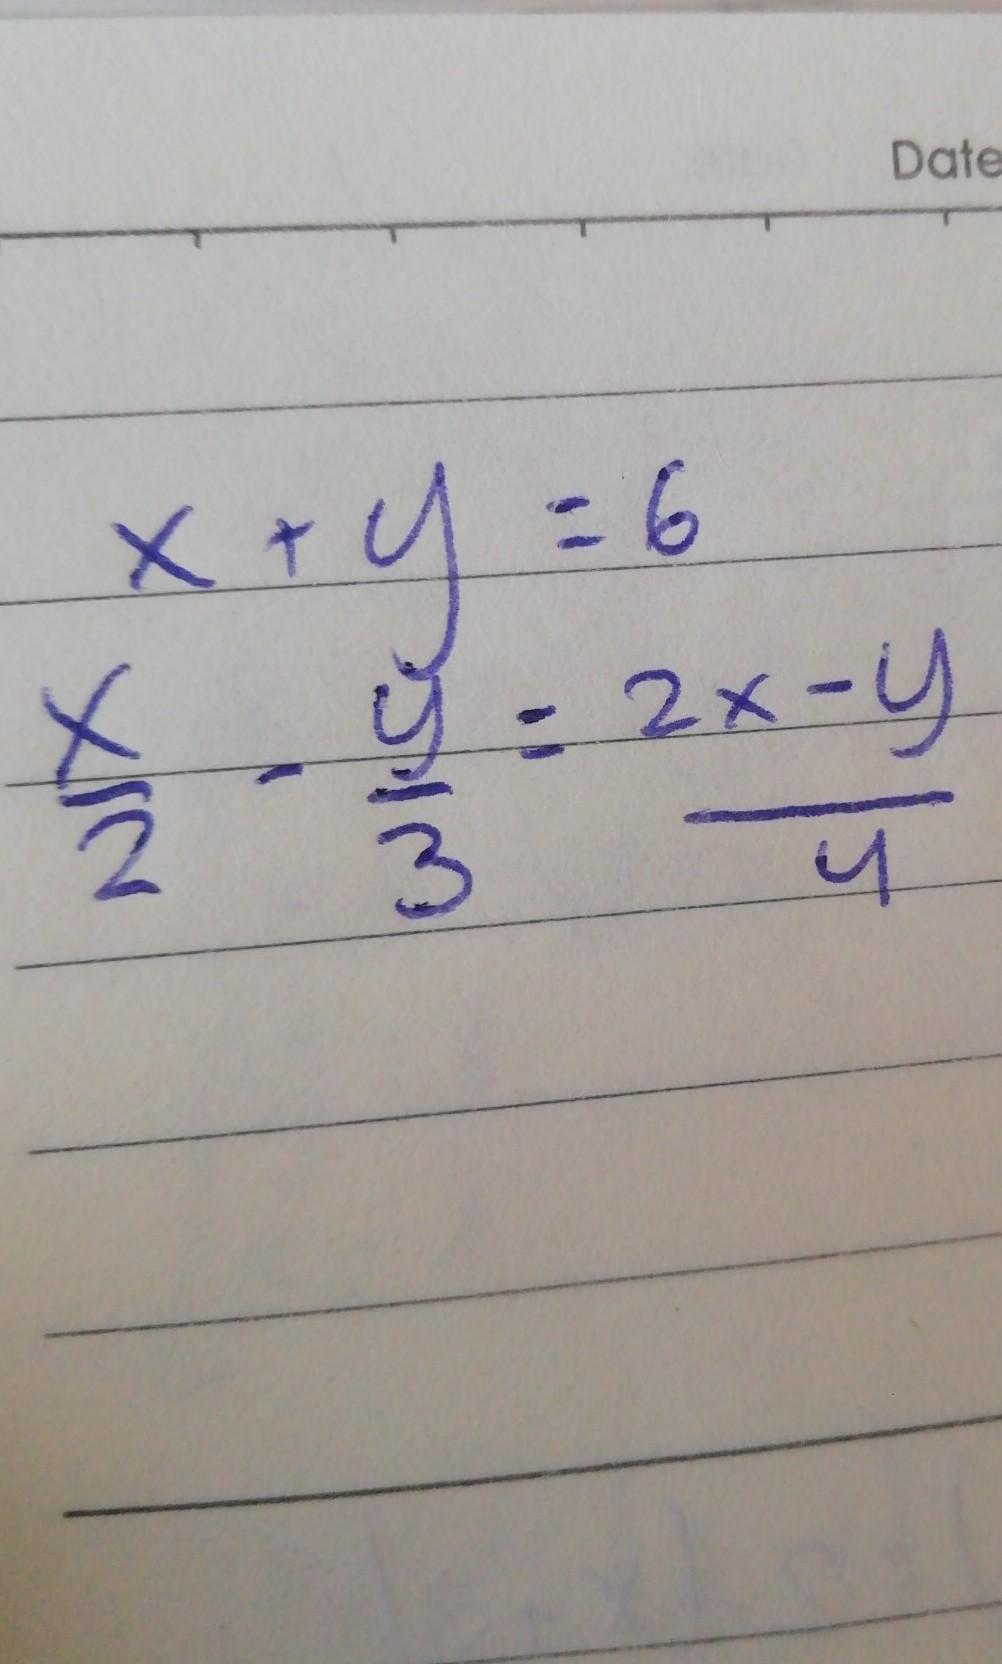 Date
x + y = 6
x/2 - y/3 = 2x - y/4